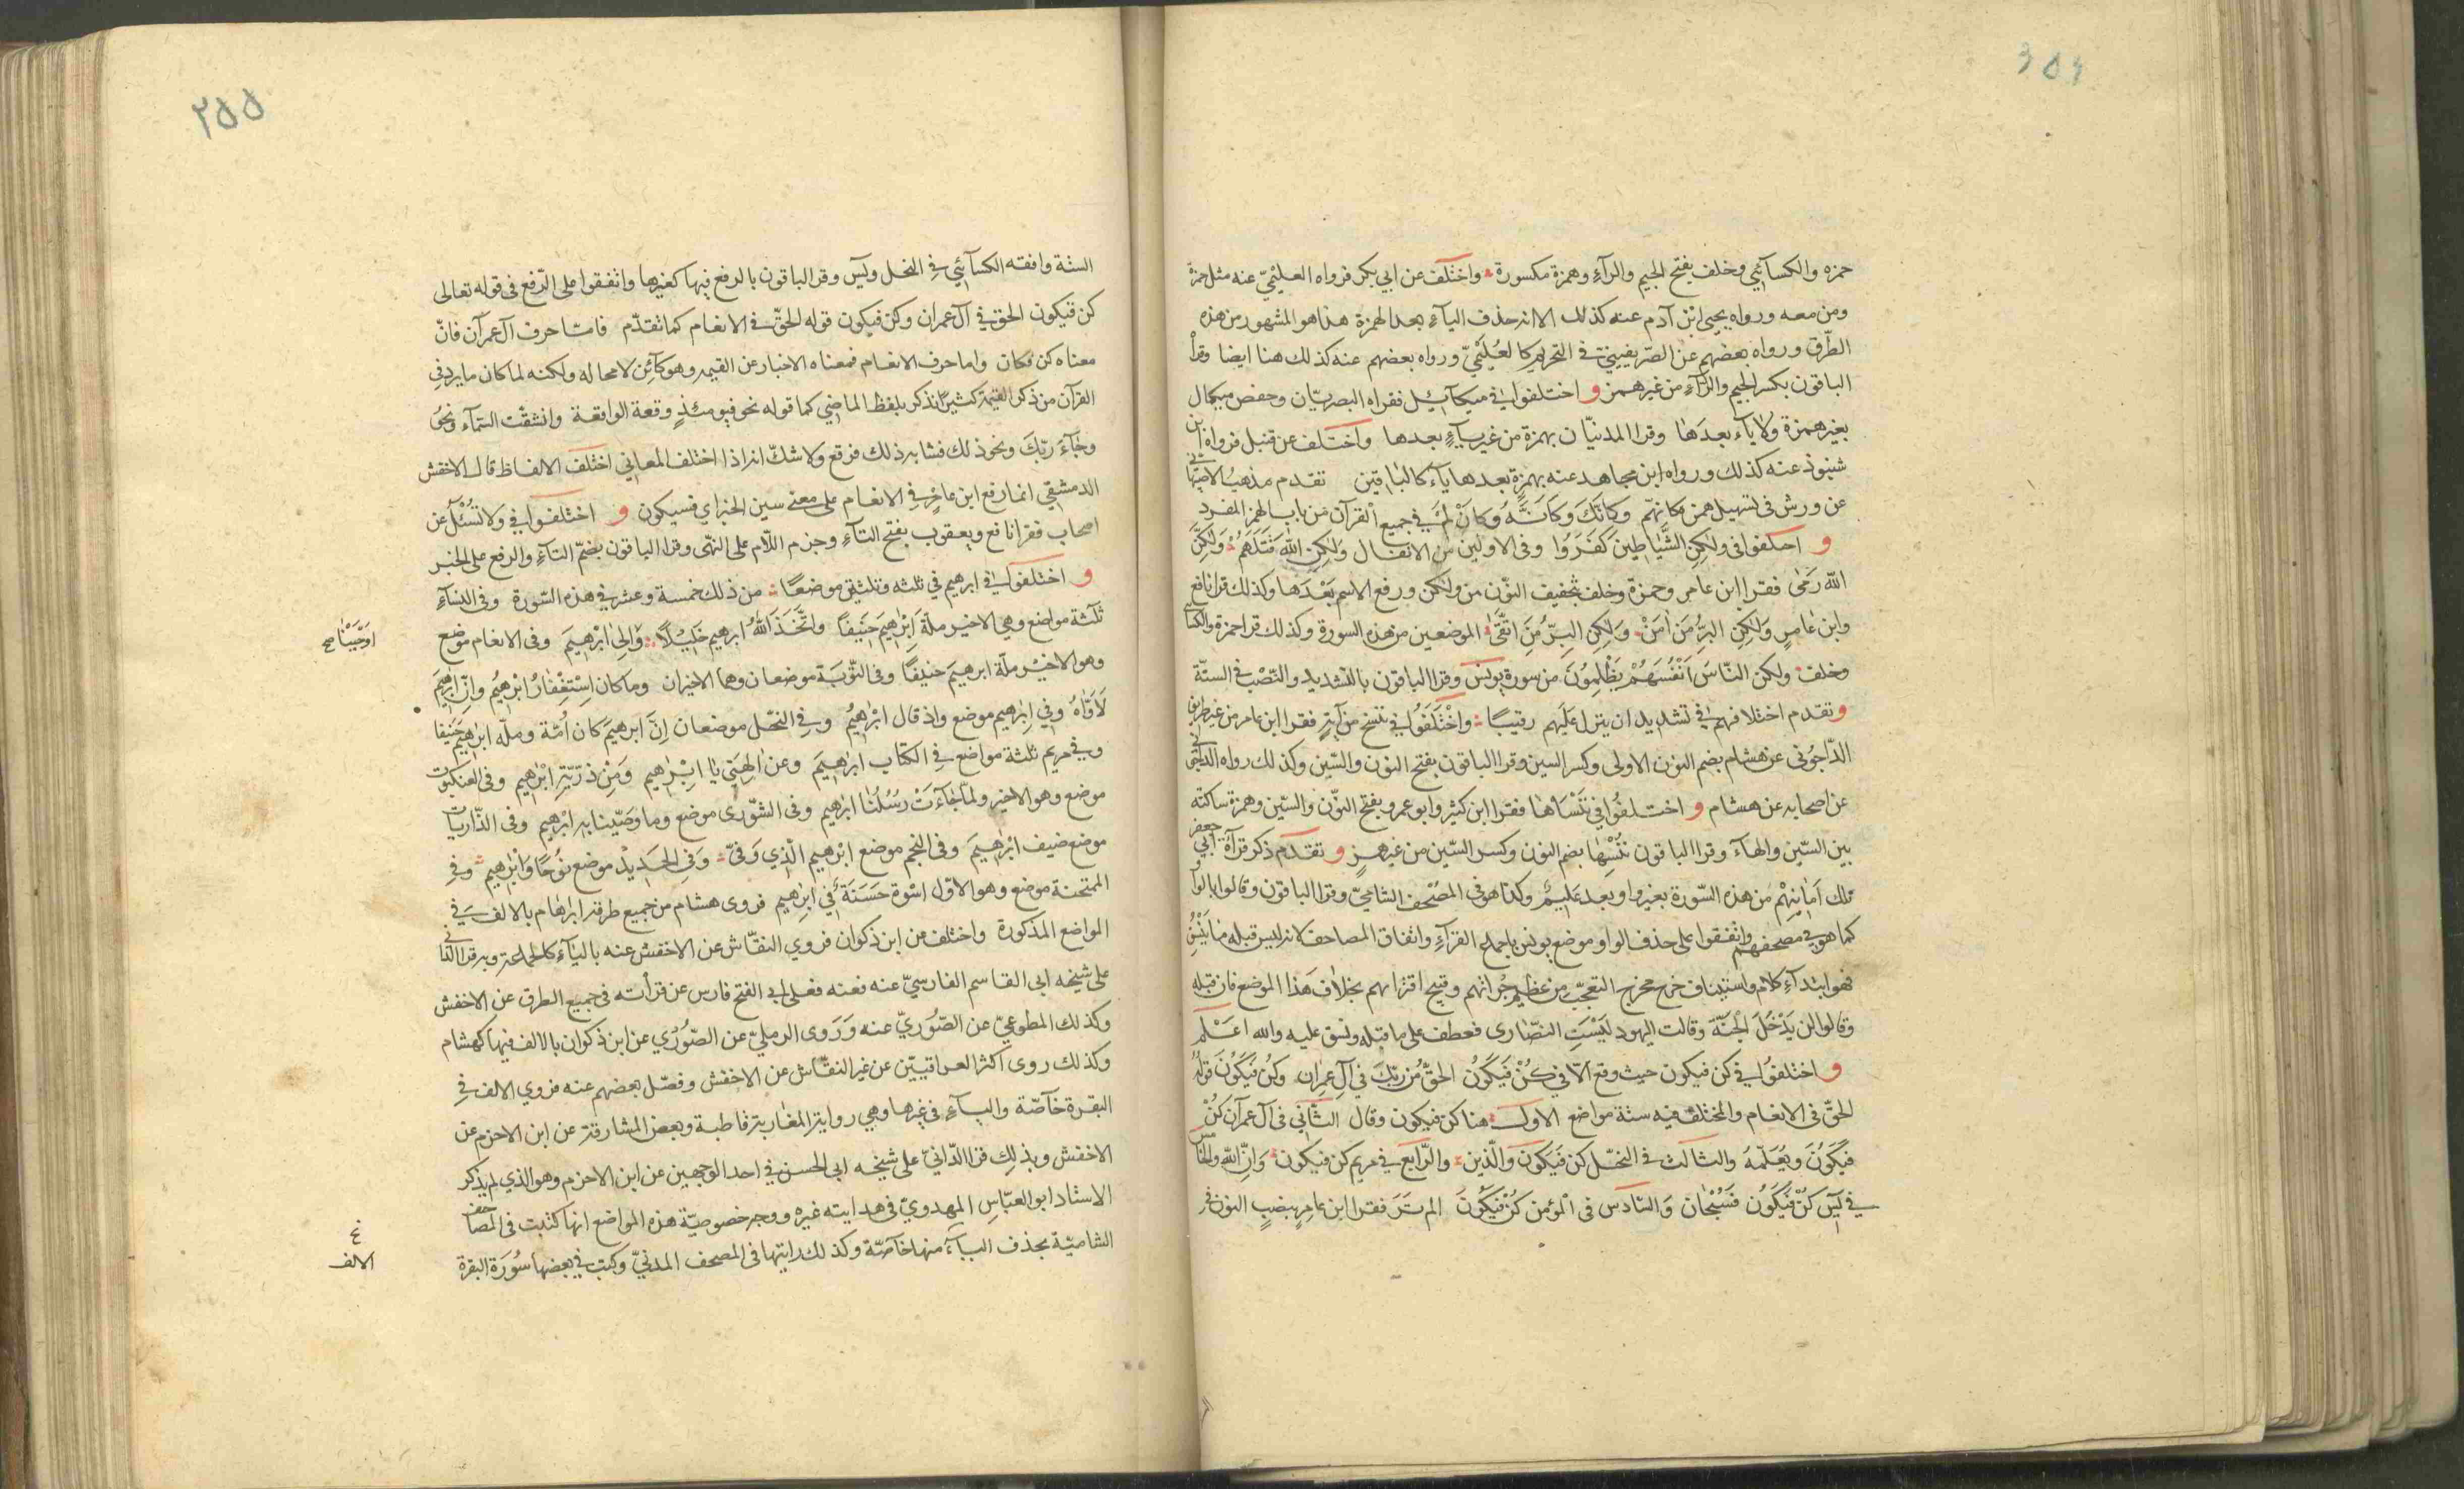 حمزه والكسآئي وخلف بفتح الجيم والرآء وهمزة مكسورة واختلف عن ابي بكر فرواه العليميّ عنه مثل حمزة
ومن معه ورواه يحيى ابن آدم عنه كذلك الا انه حذف اليآء بعد الهمزة هذا هو المشهور من هذه
الطّرق ورواه بعضهم عن الصّريفيني في التحريم كالعُلَيْميّ ورواه بعضهم عنه كذلك هنا ايضا وقرأ
الباقون بكسر الجيم والرّآء من غير همز و اختلفوا في ميكآئيل فقراه البصريّان وحفص ميكال
بغير همزة ولاياء بعدَها وقرا المدنيّان بهمزة من غير يآء بعدها واختلف عن قنبل فرواه ابن
شنبوذ عنه كذلك ورواه ابن مجاهد عنه بهمزة بعدها ياء كالباقين تقدم مذهب الاصبهانى
عن ورش فى تسهيل همز كانهّم وكانّك وكَانَّهُ وكانْ لمْ في جميع القرآن من باب الهمز المفرد
و اختلفوا فى ولكِنِ الشَّيَاطِين كَفَرُوا وفى الاولين من الانفال وَلكِن اللّه قَتَلَهمُ وَلكِنَّ
اللّه رَمٰى فقرا ابن عامر وحمزة وخلف بتخفيف النّون من ولكن ورفع الاسم بَعْدَها وكذلك قرا نافع
وابن عامرٍ وَلكِنِ البِرُّ مَنْ اٰمَنْ وَلكِنِ البِرُّ مَنَ اتَّقَىٰ الموضعين من هذه السورة وكذلك قرا حمزة والكسائى
وخلف ولكن النّاسَ اَنْفُسَهُمْ يَظْلِمُونَ من سورة يونس وقرا الباقون بالتشديد والنّصْب فى الستّة
و تقدم اختلافهم في تشديد ان ينزل عليهم رقيبًا واخْتَلَفُوا في ننسخ من آيةٍ فقرا ابن عامر من غير طريق
الدّاجُونى عن هشام بضم النون الاولى وكسر السين وقرا الباقون بفتح النون والسّين وكذلك رواه الداجونى
عن اصحابه عن هشام و اختلفُوا في نَنْسَأها فقرا ابن كثير وابو عمرو بفتح النوّن والسّين وهمزة ساكنة
بين السّين والهآء وقرا الباقون نُنْسِها بضم النون وكسر السّين من غير همز و تقدم ذكر قرآة ابي جعفر
تلك اَمَانِيْهِمْ من هذه السّورة بغير واو بعد عَلِيمٌ وكذا هو فى المصْحف الشاميّ وقرا الباقون وقالوا بالواو
كما هو في مصاحفهم واتفقوا على حذف الواو موضع يونس باجماع القرّآء واتفاق المصاحف لانه ليس قبله ما ينسق
فهو ابتدآء كلام واستيناف خرج مخرج التعجّب من عظيم جُرأتهم وقبيح افترائهم بخلاف هَذا الموضع فان قبله
وقالوا لن يَدْخُلَ الْجَنَّة وقالت اليهود لَيْسَتِ النصّارى فعطف على ما قبله ونسق عليه والله اعَلم
و اختلفوُا في كن فيكون حيث وقع الّا في كُنْ فَيَكُونُ الحقُّ مِن رَبّكَ في آل عِمران وكُنْ فَيَكُونُ قَولُهُ
الحقّ فى الانعام والمختلف فيه ستة مواضع الاول هنا كن فيكون وقال الثّانَي فى آل عمرآن كُنْ
فَيَكُونُ وَيُعَلّمهُ والثالث فى النحّل كن فَيَكُونَ وَالّذين والرّابع في مريم كن فيكون وَانّ اللّه والخامس
في يٓس كُنْ فَيَكُون فَسُبْحَانَ وَالسّادَس فى الْمؤمن كُنْ فيَكُونَ الم تَرَ فقرا ابن عامر بنصب النون في
٢٥٥
الستة وافقه الكسآئي في النحل ويٓس وقرا الباقون بالرفع فيها كغيرها واتفقوا على الرّفع فى قوله تعالى
كن فيكون الحق في آل عمران وكن فيكون قوله الحقّ في الانعام كما تقدّم فامّا حرف آل عمرآن فانّ
معناه كن فكان واما حرف الانعام فمعناه الاخبار عن القيمه وهو كآئِن لا محاله ولكنه لما كان ما يرد فى
القرآن من ذكر القيٰمة كثيرًا يذكر بلفظ الماضي كما قوله نحو فيومئذٍ وقعة الواقعة وانشقّت السّمآء ونحوُ
وجآءَ رَبّكَ ونحو ذلك فشابه ذلك فرفع ولا شكّ انه اذا اختلف المعاني اختلف الالفاظ قال الاخفش
الدمشقي انما رفع ابن عامرٍ في الانعام على معنى سين الخبر اي فسيكون و اختلفوا في ولا تُسْئَل عن
اصحاب فقرا نافع ويعقوب بفتح التآء وجزم اللّام على النهّى وقرا الباقون بضمّ التآء والرفع على الخبر
و اختلفوا في ابرهيم في ثلثه وثلثين موضعًا من ذلك خمسة وعشر في هذه السّورة وفى النسآء
ثلثة مواضع وهي الاخير ملّة اِبْرٰهيمَ حَنِيفًا واتّخَذ اَللّٰهُ ابرهيم خَلِيْلًا وَالىٰ ابْرٰهيمَ وفى الانعام موضع
اوحَيْنا صح
وهو الاخيْر ملّة ابرهيمَ حنيفًا وفى التّوبَة موضعان وهما الاخيران وما كان اِسْتِغْفارُ ابْرهيمُ وانّ اِبْرٰهيمَ
لَأوّاهُ وفي اِبرهيم موضع واذ قال ابْرٰهيمُ وفي النحّل موضعان اِنَّ ابرهيمَ كان اُمّة وملّه ابْرٰهيم حَنِيفا
وفي مريم ثلثة مواضع في الكتاب ابرٰهيمَ وعن اٰلِهتي يا اِبْرٰهيم وَمِنْ ذرّيّة ابْرٰهيم وفى العنكبوت
موضع وهو الاخير ولما جَآءَتْ رُسُلُنا ابرٰهيم وفى الشوّرى موضع وما وَصّينا به ابْرٰهيم وفى الذّاريات
موضع ضيف ابْرٰهيمَ وفى النجم موضع ابْرهيم الّذِي وَفىّٰ وَفى الحَدِيدْ موضع نوُحًا وَاِبْرٰهيم وفي
الممتحنة موضع وهو الاوّل اسْوة حَسَنَة في ابرٰهيم فروى هشام من جميع طرقه ابرٰهام بالالف في
المواضع المذكورة واختلف عن ابن ذكوان فروي النقّاش عن الاخفش عنه باليآء كالجماعة وبه قرا الدانى
على شيخه ابى القاسم الفارسيّ عنه فعنه فعلى ابي الفتح فارس عن قرأته فى جميع الطرق عن الاخفش
وكذلك المطوعيّ عن الصّوريّ عنه وَرَوى الرمليّ عن الصّورْي عن ابن ذكوان بالالف فيها كهشام
وكذلك روى اكثر العراقيّين عن غير النقّاش عن الاخفش وفصّل بعضهم عنه فروي الالف في
البقرة خآصّة واليآء فى غيرها وهي رواية المغاربة قاطبة وبعض المشارقة عن ابن الاخرم عن
الاخفش وبذلك قرا الدّانيّ على شيخه ابى الحسن في احد الوجهين عن ابن الاخرم وهو الذي لم يذكر
الاستاد ابو العبّاس المهدويّ فى هدايته غيره ووجه خصوصيّة هذه المواضع انها كتبت فى المصاحف
الشاميّة بحذف اليآء منها خآصّة وكذلك رايتها فى المصحف المدنيّ وكتب في بعضها سُورَة البقرة
الالف